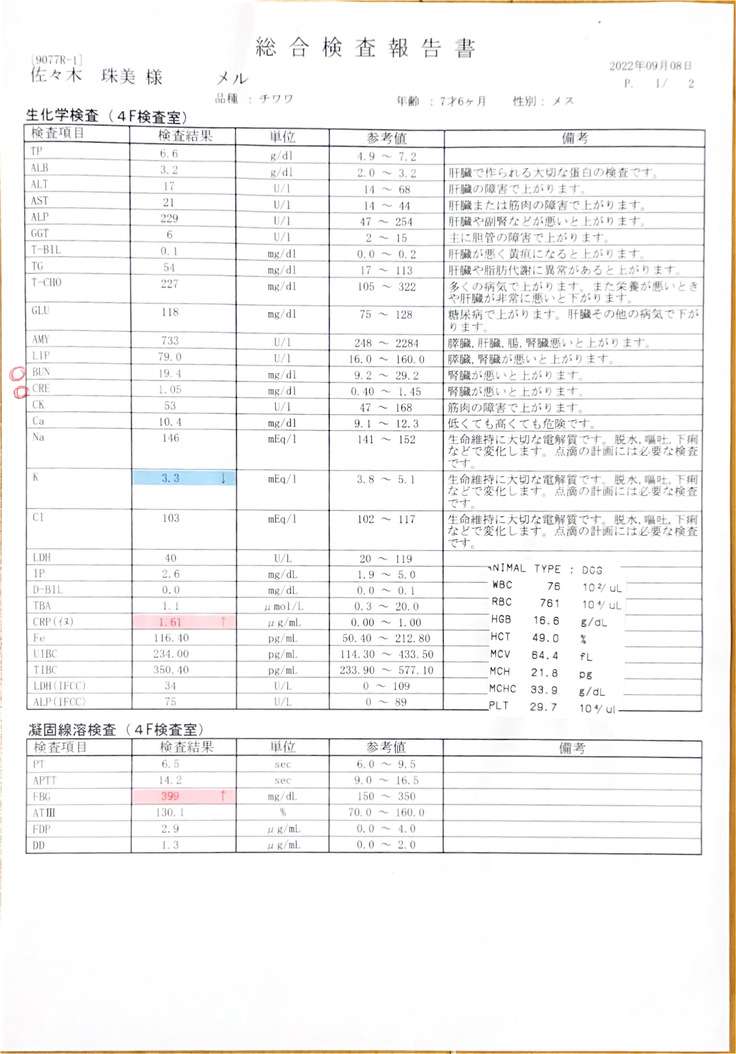 総合検査報告書
[9077R-1]
佐々木 珠美 様 メル
2022年09月08日
P. 1/ 2
品種 : チワワ 年齢 : 7才6ヶ月 性別 : メス
生化学検査（４F検査室）
検査項目 検査結果 単位 参考値 備考
TP 6.6 g/dl 4.9 ～ 7.2
ALB 3.2 g/dl 2.0 ～ 3.2 肝臓で作られる大切な蛋白の検査です。
ALT 17 U/l 14 ～ 68 肝臓の障害で上がります。
AST 21 U/l 14 ～ 44 肝臓または筋肉の障害で上がります。
ALP 229 U/l 47 ～ 254 肝臓や副腎などが悪いと上がります。
GGT 6 U/l 2 ～ 15 主に胆管の障害で上がります。
T-BIL 0.1 mg/dl 0.0 ～ 0.2 肝臓が悪く黄疸になると上がります。
TG 54 mg/dl 17 ～ 113 肝臓や脂肪代謝に異常があると上がります。
T-CHO 227 mg/dl 105 ～ 322 多くの病気で上がります。また栄養が悪いとき
や肝臓が非常に悪いと下がります。
GLU 118 mg/dl 75 ～ 128 糖尿病で上がります。肝臓その他の病気で下が
ります。
AMY 733 U/l 248 ～ 2284 膵臓,肝臓,腸,腎臓悪いと上がります。
LIP 79.0 U/l 16.0 ～ 160.0 膵臓,腎臓が悪いと上がります。
BUN 19.4 mg/dl 9.2 ～ 29.2 腎臓が悪いと上がります。
CRE 1.05 mg/dl 0.40 ～ 1.45 腎臓が悪いと上がります。
CK 53 U/l 47 ～ 168 筋肉の障害で上がります。
Ca 10.4 mg/dl 9.1 ～ 12.3 低くても高くても危険です。
Na 146 mEq/l 141 ～ 152 生命維持に大切な電解質です。脱水,嘔吐,下痢
などで変化します。点滴の計画には必要な検査
です。
K 3.3 ↓ mEq/l 3.8 ～ 5.1 生命維持に大切な電解質です。脱水,嘔吐,下痢
などで変化します。点滴の計画には必要な検査
です。
Cl 103 mEq/l 102 ～ 117 生命維持に大切な電解質です。脱水,嘔吐,下痢
などで変化します。点滴の計画には必要な検査
です。
LDH 40 U/L 20 ～ 119
IP 2.6 mg/dL 1.9 ～ 5.0
D-BIL 0.0 mg/dL 0.0 ～ 0.1
TBA 1.1 μmol/L 0.3 ～ 20.0
CRP(ｲﾇ) 1.61 ↑ μg/mL 0.00 ～ 1.00
Fe 116.40 pg/mL 50.40 ～ 212.80
UIBC 234.00 pg/mL 114.30 ～ 433.50
TIBC 350.40 pg/mL 233.90 ～ 577.10
LDH(IFCC) 34 U/L 0 ～ 109
ALP(IFCC) 75 U/L 0 ～ 89
ANIMAL TYPE : DOG
WBC 76 10²/uL
RBC 761 10⁴/uL
HGB 16.6 g/dL
HCT 49.0 %
MCV 64.4 fL
MCH 21.8 pg
MCHC 33.9 g/dL
PLT 29.7 10⁴/ul
凝固線溶検査（４F検査室）
検査項目 検査結果 単位 参考値 備考
PT 6.5 sec 6.0 ～ 9.5
APTT 14.2 sec 9.0 ～ 16.5
FBG 399 ↑ mg/dL 150 ～ 350
ATⅢ 130.1 % 70.0 ～ 160.0
FDP 2.9 μg/mL 0.0 ～ 4.0
DD 1.3 μg/mL 0.0 ～ 2.0